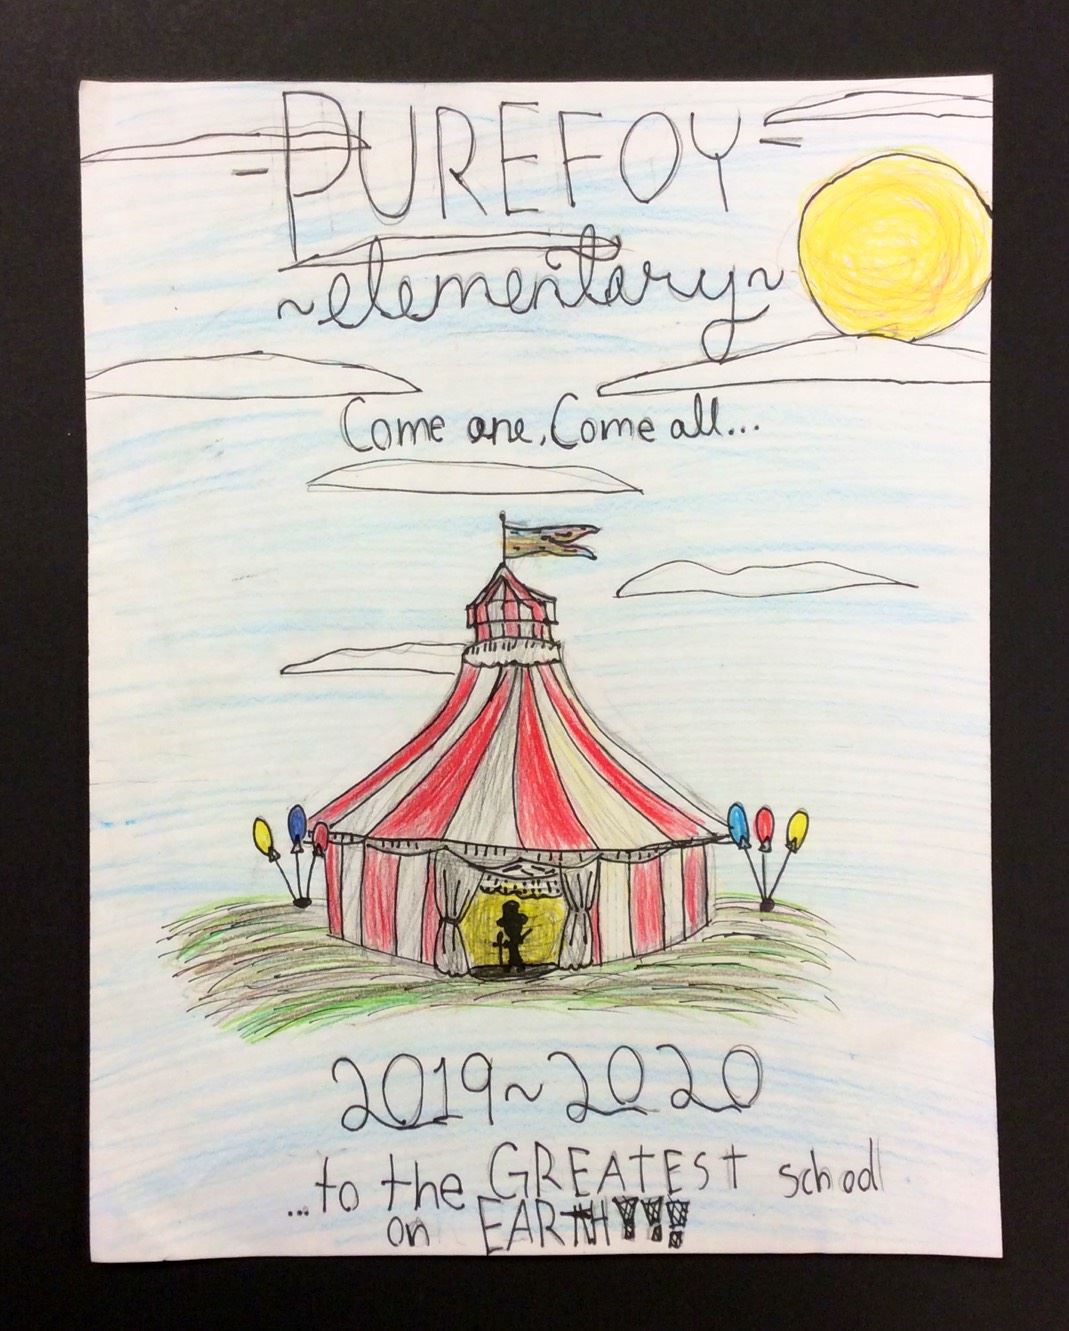 -PUREFOY-
~elementary~
Come one, Come all...
2019~2020
...to the GREATEST school
on EARTH!!!